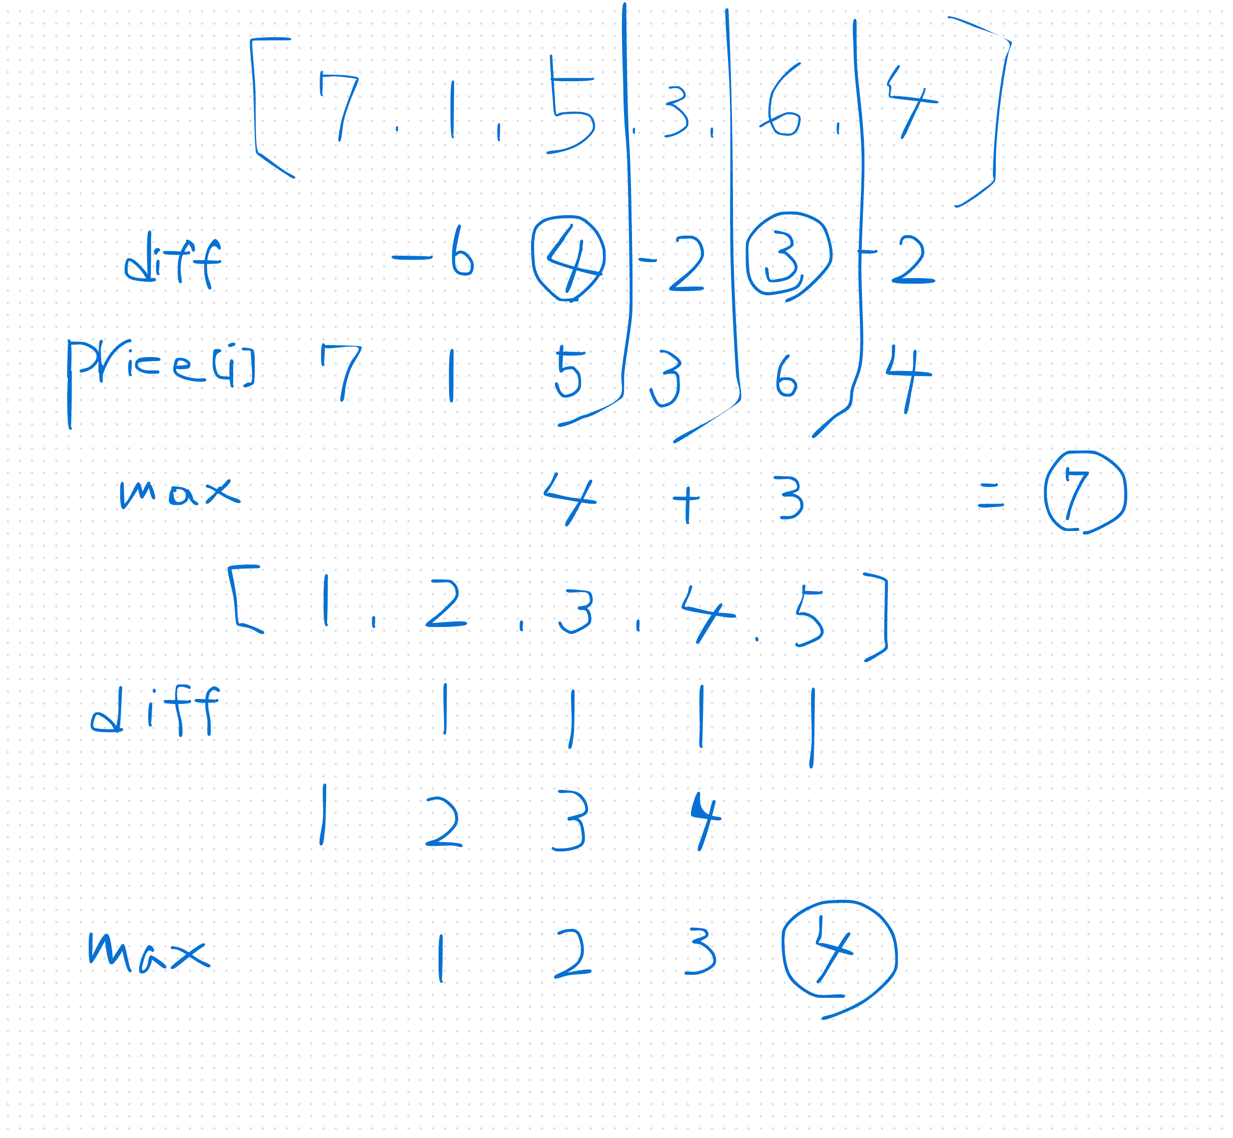 [7.1.5.3.6.4]
diff -6 4 -2 3 -2
price[i] 7 1 5 3 6 4
max 4 + 3 = 7
[1.2.3.4.5]
diff 1 1 1 1
1 2 3 4
max 1 2 3 4